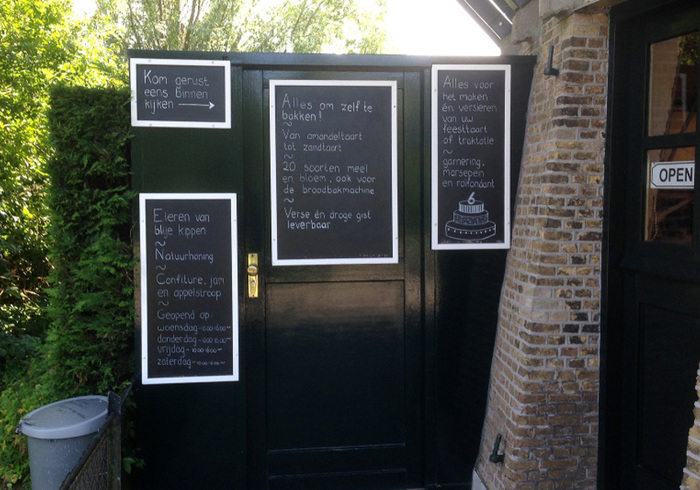 Kom gerust
eens binnen
kijken
Alles om zelf te
bakken!
~
Van amandeltaart
tot zandtaart
~
20 soorten meel
en bloem, ook voor
de broodbakmachine
~
Verse én droge gist
leverbaar
Alles voor
het maken
én versieren
van uw
feesttaart
of traktatie
~
garnering,
marsepein
en rolfondant
6
OPEN
Eieren van
blije kippen
~
Natuurhoning
~
Confiture, jam
en appelstroop
~
Geopend op:
woensdag-
donderdag-
vrijdag-
zaterdag-